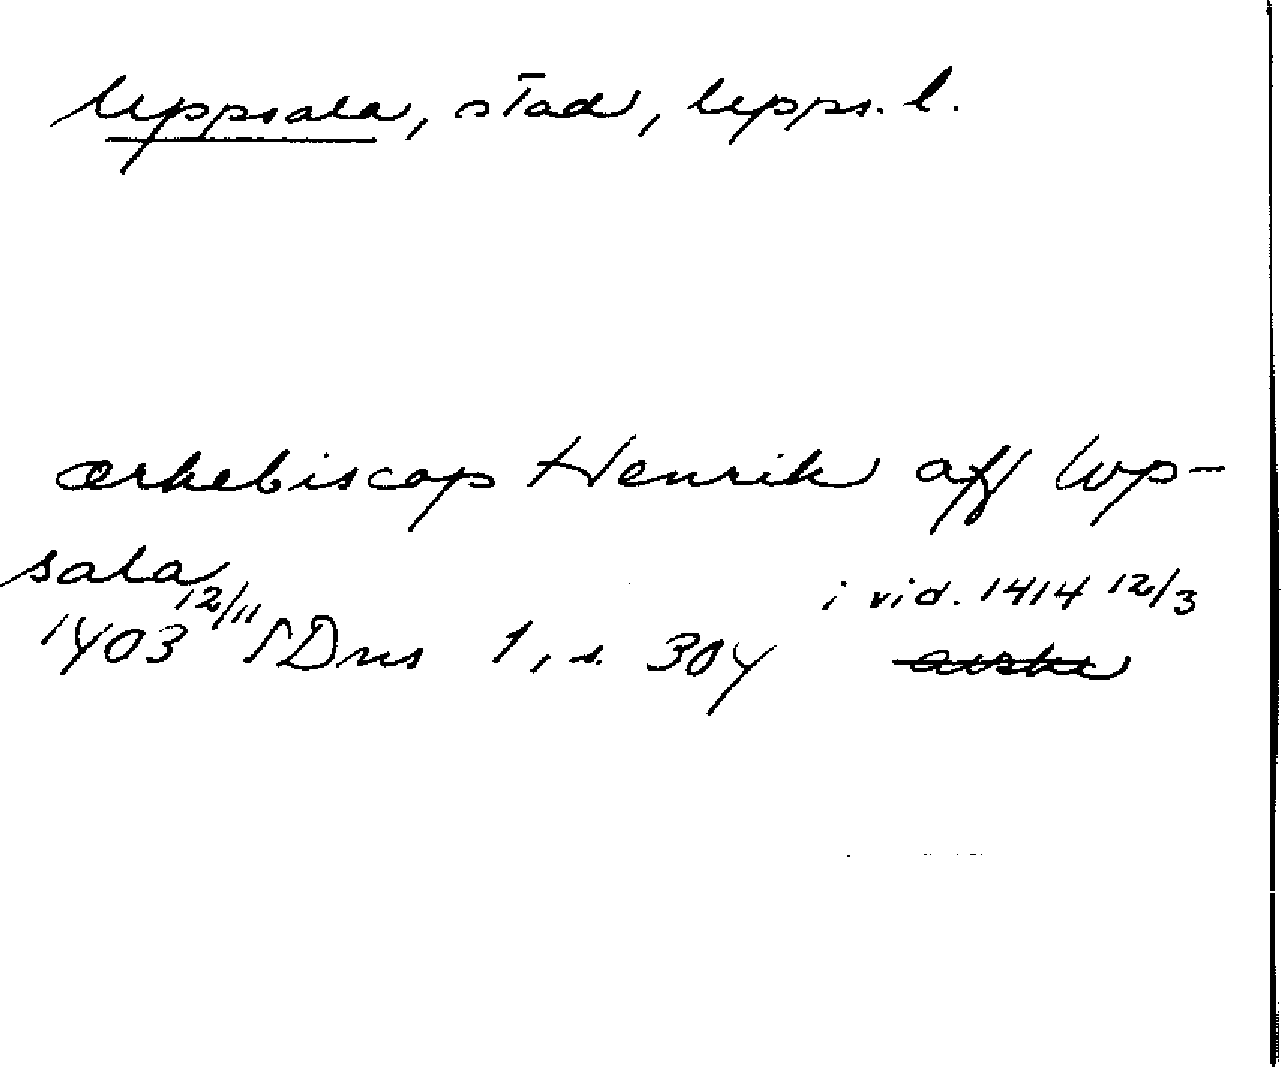 Uppsala, stad, Upps. l.
ærkebiscop Henrik aff Wp-
sala
i vid. 1414 12/3
1403 12/11 SDns 1, s. 304